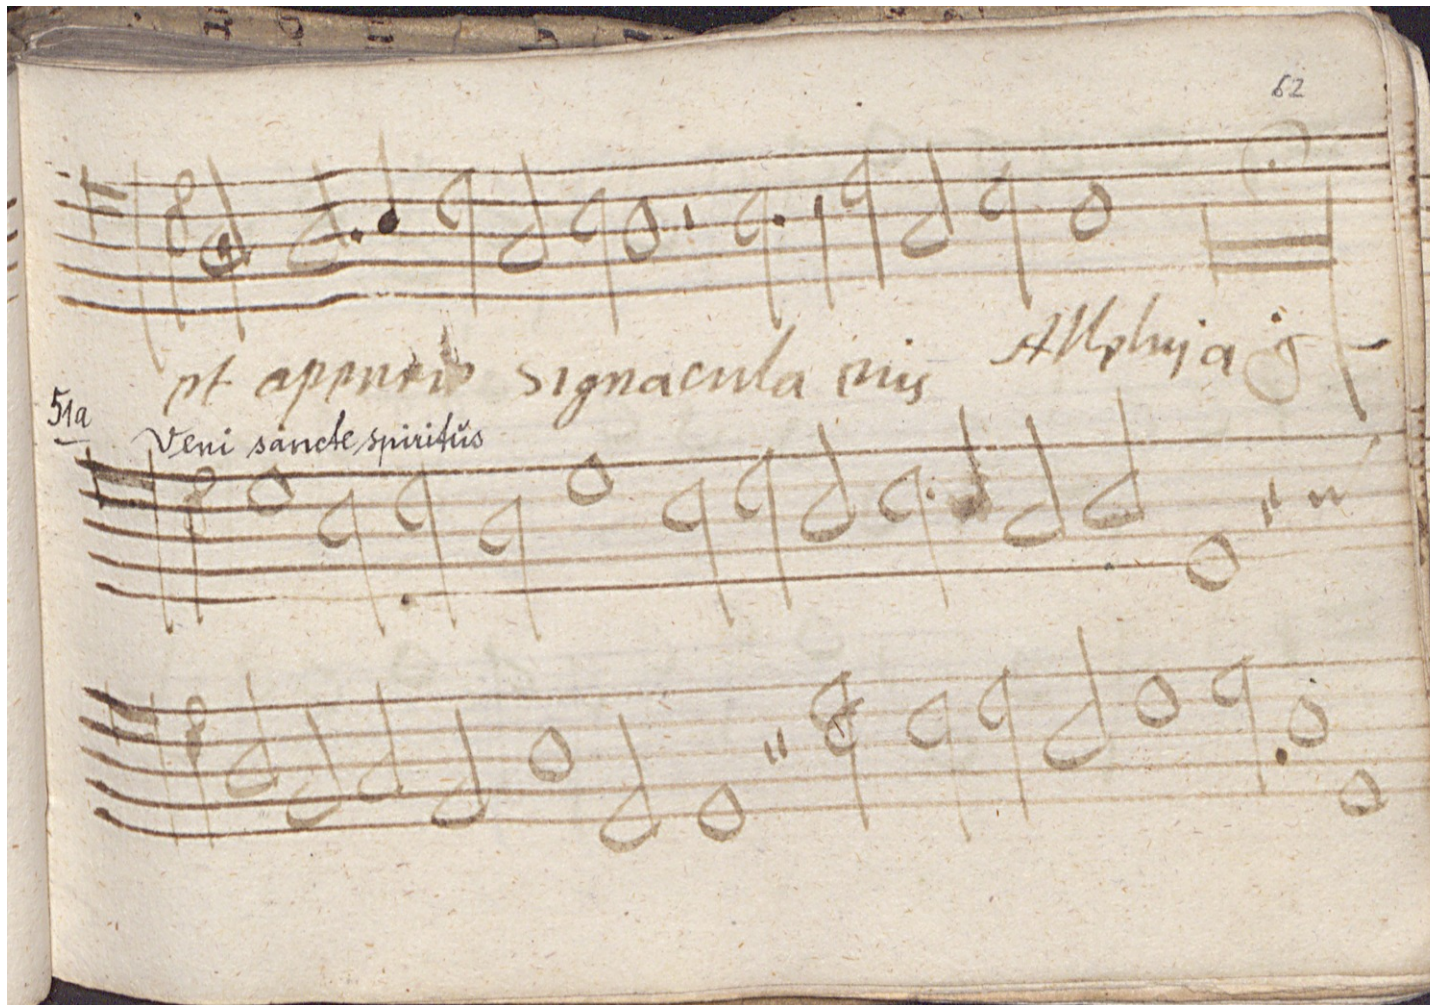 62
et aperire signacula eius Alleluja ij
51a
Veni sancte spiritus